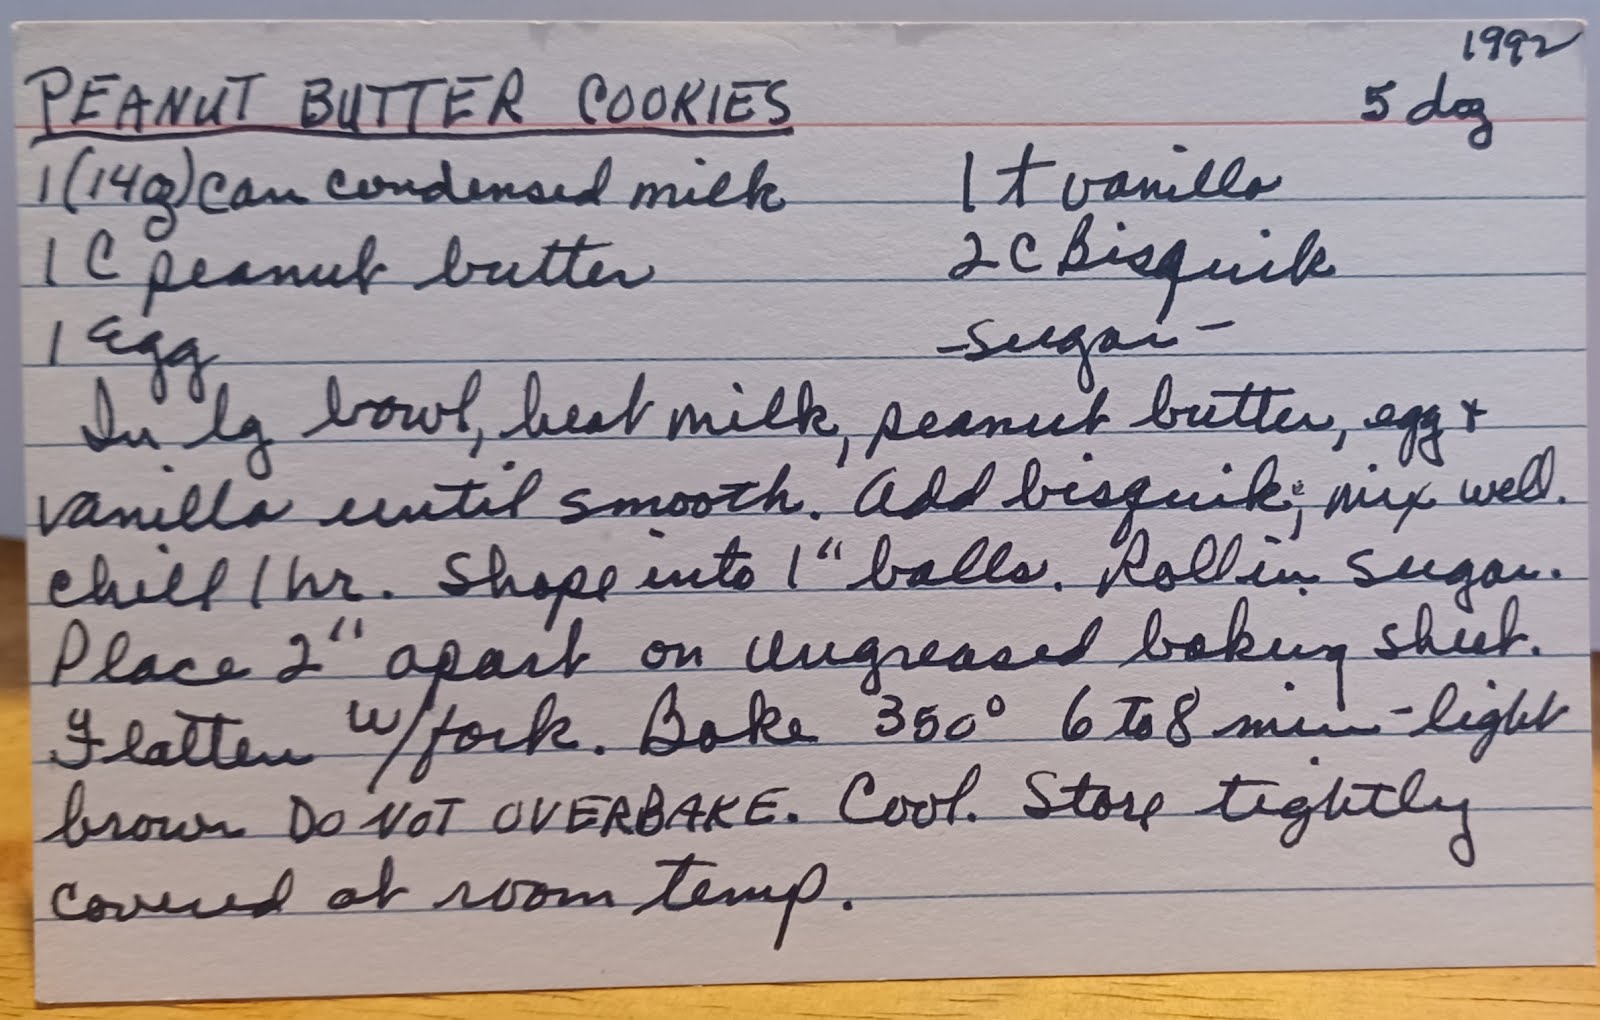 1992
PEANUT BUTTER COOKIES 5 doz
1 (14oz) can condensed milk 1 t vanilla
1 C peanut butter 2 C Bisquik
1 Egg -sugar-
In lg bowl, beat milk, peanut butter, egg +
vanilla until smooth. Add bisquik; mix well.
chill 1 hr. Shape into 1" balls. Roll in sugar.
Place 2" apart on ungreased baking sheet.
Flatten w/fork. Bake 350° 6 to 8 min - light
brown DO NOT OVERBAKE. Cool. Store tightly
covered at room temp.